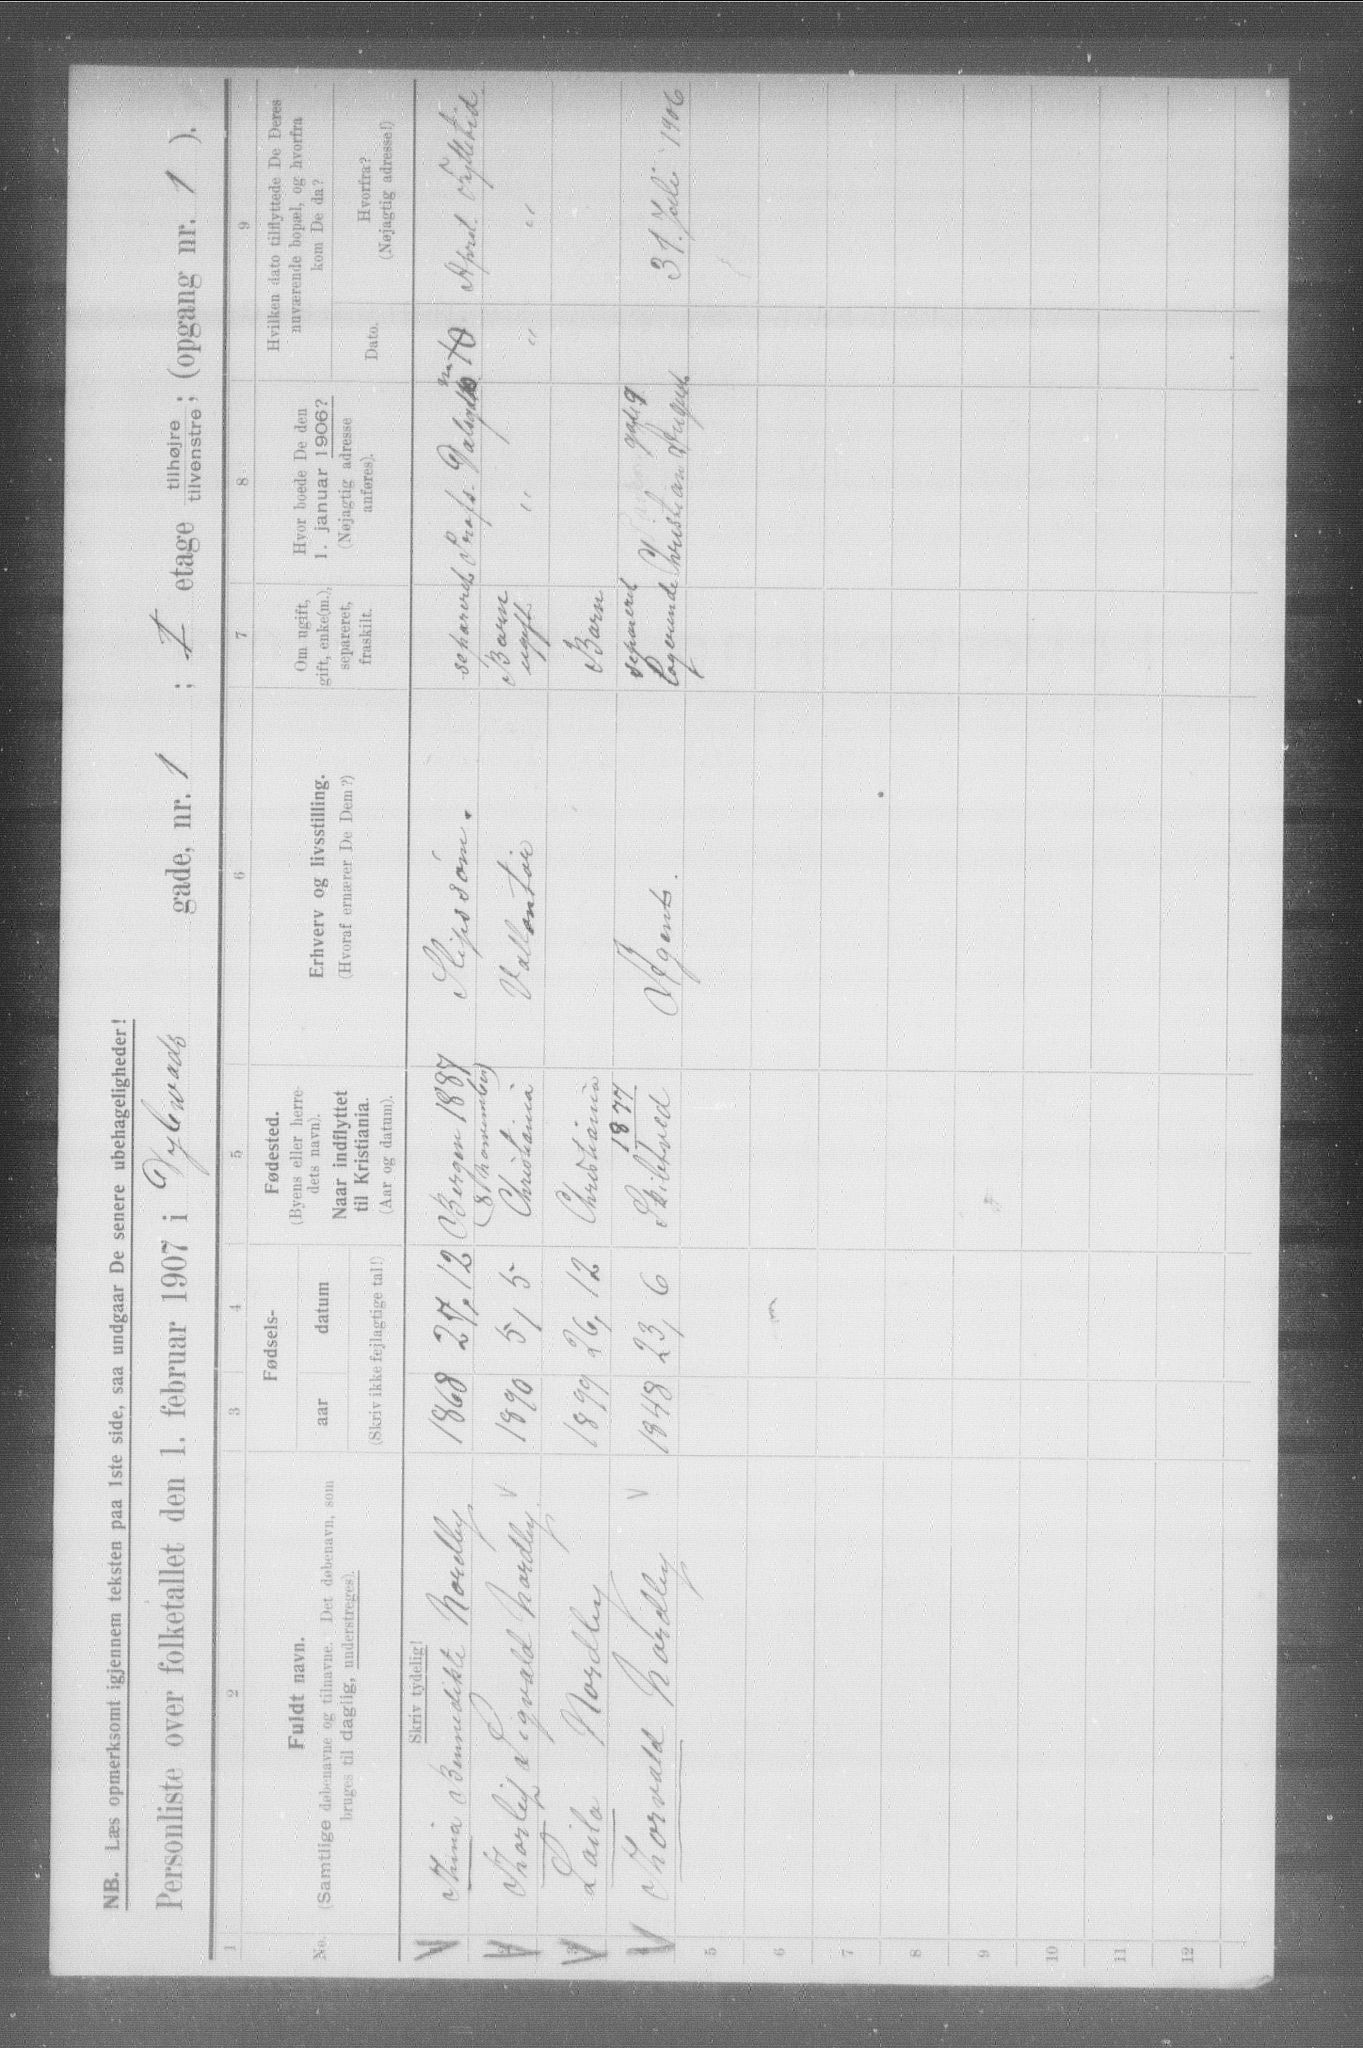 NB. Læs opmerksomt igjennem teksten paa 1ste side, saa undgaar De senere ubehageligheder!
Personliste over folketallet den 1. februar 1907 i gade, nr. 1 ; I etage tilhøjre tilvenstre; (opgang nr. 1 ).
1 2 3 4 5 6 7 8 9
No. Fuldt navn.
(Samtlige døbenavne og tilnavne. Det døbenavn, som
bruges til daglig, understreges).
Fødsels-
aar datum
(Skriv ikke fejlagtige tal!)
Fødested.
(Byens eller herre-
dets navn).
Naar indflyttet
til Kristiania.
(Aar og datum).
Erhverv og livsstilling.
(Hvoraf ernærer De Dem?)
Om ugift,
gift, enke(m.),
separeret,
fraskilt.
Hvor boede De den
1. januar 1906?
(Nøjagtig adresse
anføres).
Hvilken dato tilflyttede De Deres
nuværende bopæl, og hvorfra
kom De da?
Dato.
Hvorfra?
(Nøjagtig adresse!)
Skriv tydelig!
Bennedikte Nordley 1868 27, 12 Bergen 1887 Slipssöm. separeret Profs. Dalsgd nr 10 April Flyttetid
(8 November)
Thorleif Sigvald Nordley V 1890 5, 5 Christiania Vollontör Barn ugift " " "
Laila Nordley 1899 26, 12 Christiania Barn
Thorvald Nordley V 1848 23, 6 Skibtved 1877 Agent. separeret logerende Christian Augusts gade 9 31. Juli 1906
5
6
7
8
9
10
11
12